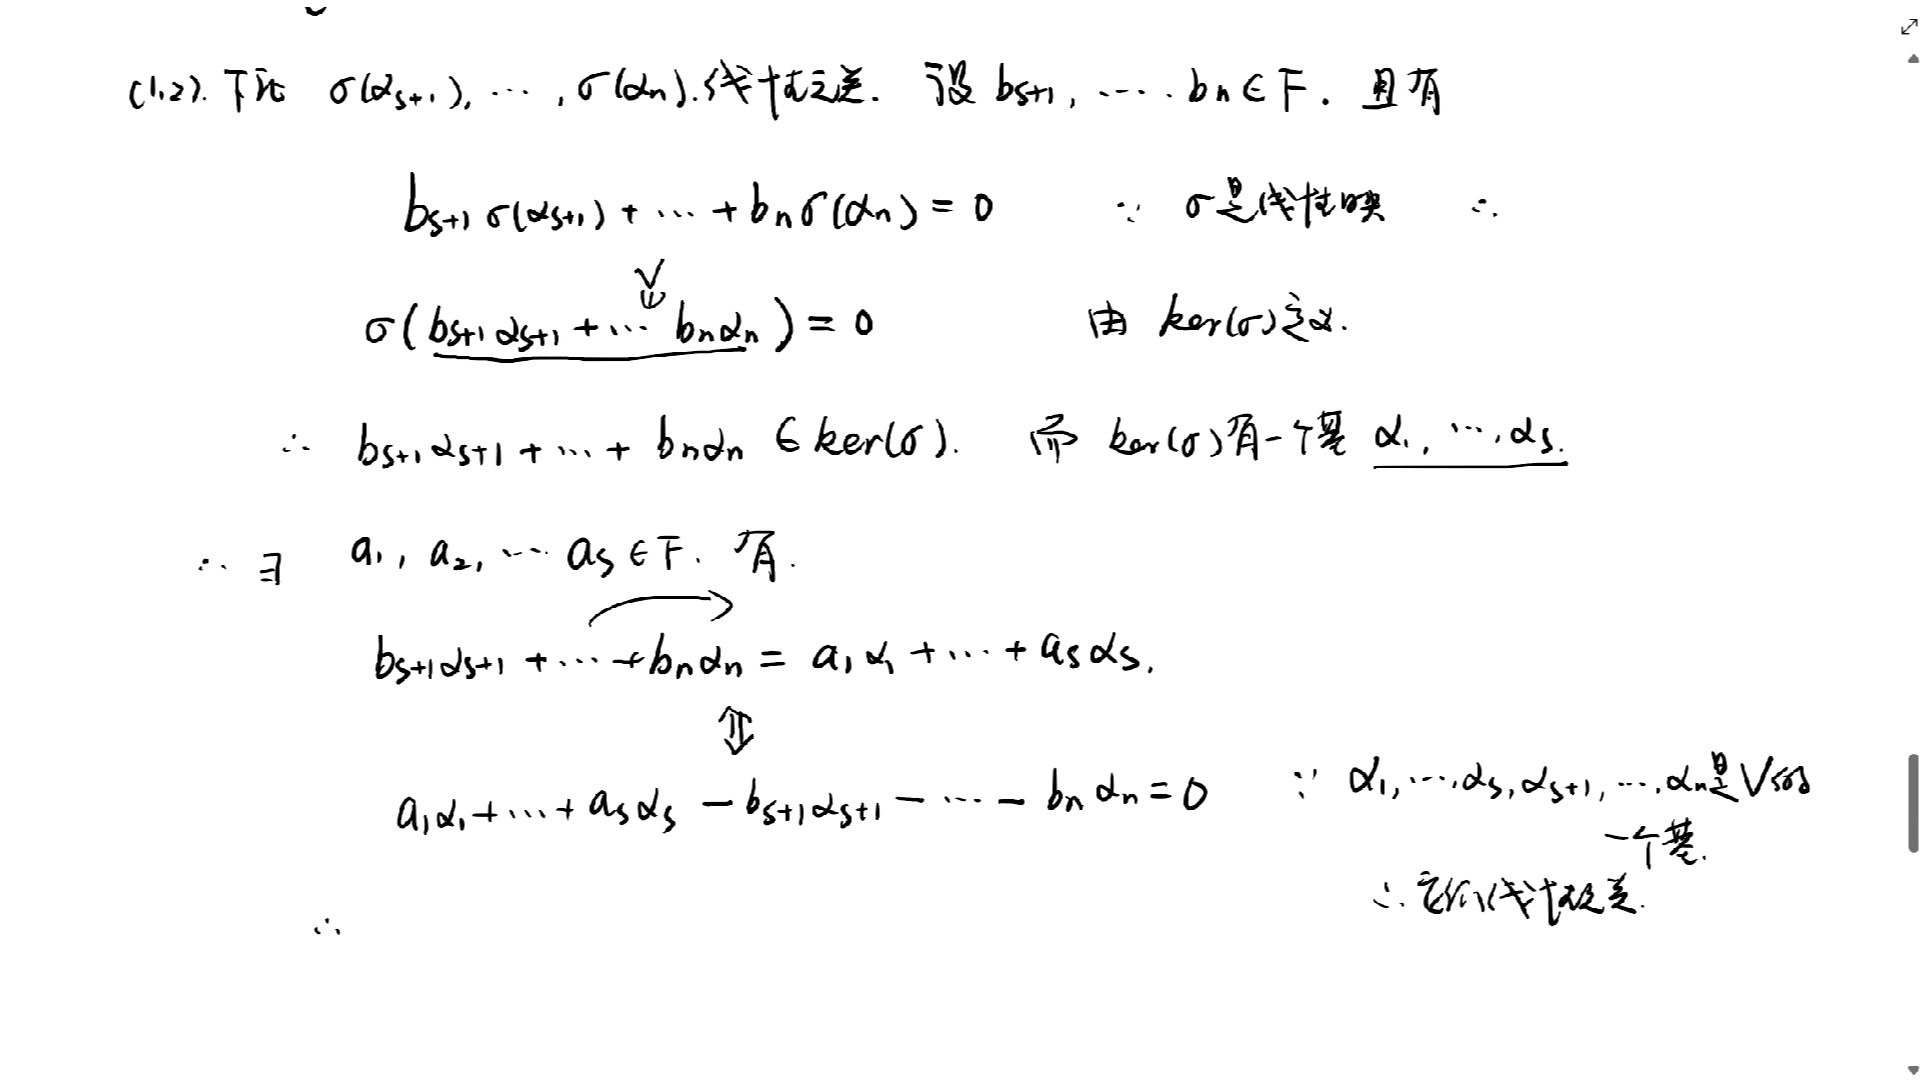 (1,2). 下证 σ(αs+1), ⋯, σ(αn). 线性无关. 设 bs+1, ⋯. bn ∈ F. 且有
bs+1 σ(αs+1) + ⋯ + bn σ(αn) = 0 ∵ σ是线性映 ∴
σ( bs+1 αs+1 + ⋯ bn αn ) = 0 由 ker(σ)定义.
∴ bs+1 αs+1 + ⋯ + bn αn ∈ ker(σ). 而 ker(σ)有一个基 α1, ⋯, αs.
∴ ∃ a1, a2, ⋯ as ∈ F. 有.
bs+1 αs+1 + ⋯ + bn αn = a1 α1 + ⋯ + as αs.
⇕
a1 α1 + ⋯ + as αs − bs+1 αs+1 − ⋯ − bn αn = 0 ∵ α1, ⋯, αs, αs+1, ⋯, αn是V的
一个基.
∴ 它们线性无关.
∴